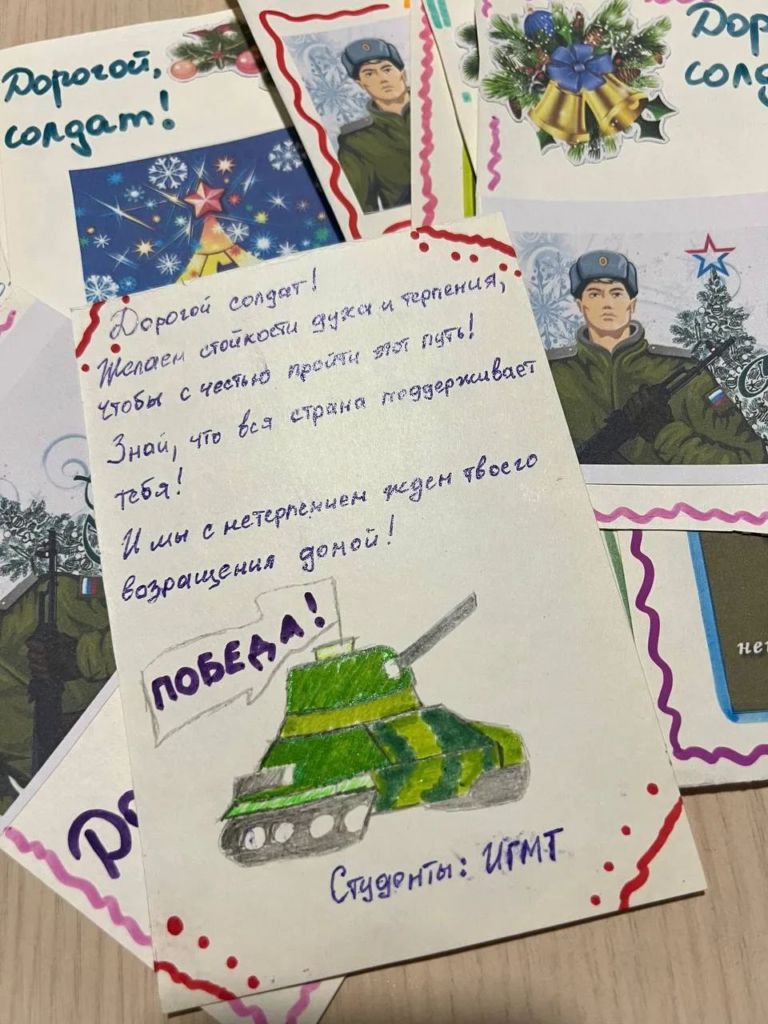 Дорогой,
солдат!
Дорогой солдат!
Желаем стойкости духа и терпения,
чтобы с честью пройти этот путь!
Знай, что вся страна поддерживает
тебя!
И мы с нетерпением ждем твоего
возращения домой!
ПОБЕДА!
Студенты: ИГМТ